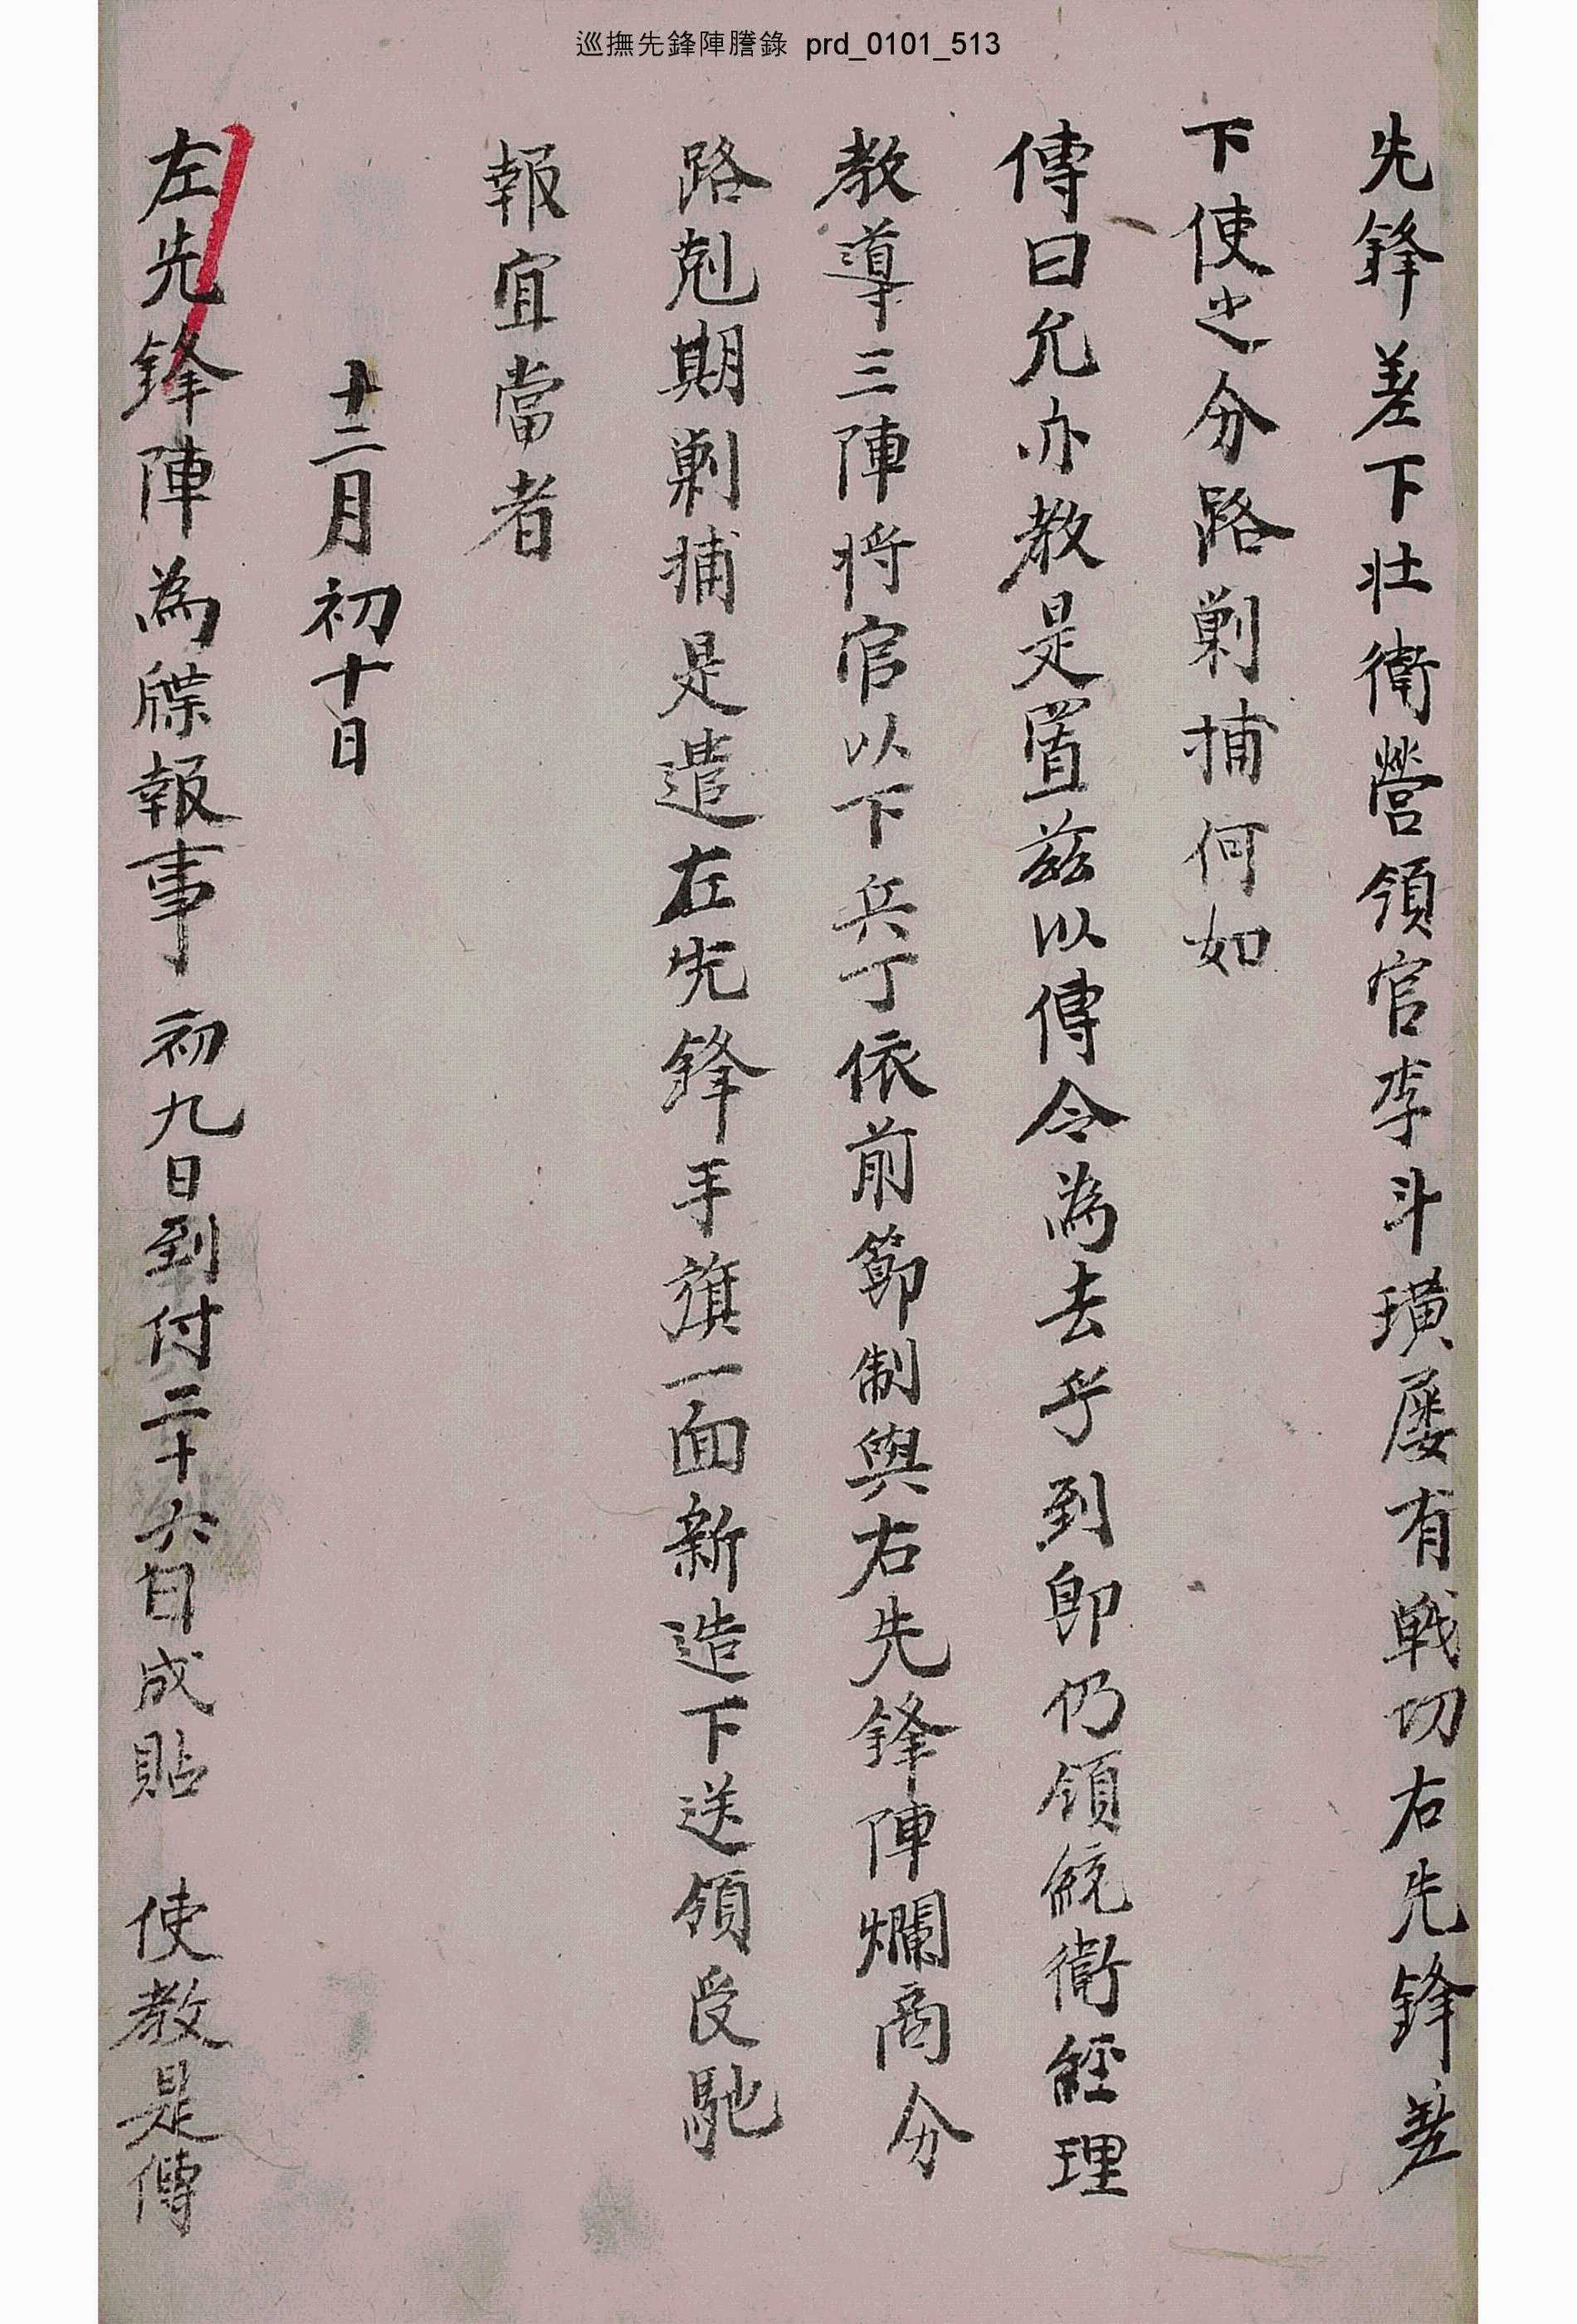 巡撫先鋒陣謄錄 prd_0101_513
先鋒差下壯衛營領官李斗璜屡有戦切右先鋒差
下使之分路剿捕何如
傳曰允亦教是置玆以傳令為去乎到卽仍領統衛經理
教導三陣將官以下兵丁依前節制與右先鋒陣爛商分
路剋期剿捕是遣左先鋒手旗一面新造下送領受馳
報宜當者
十二月初十日
左先鋒陣為牒報事 初九日到付二十六日成貼 使教是傳